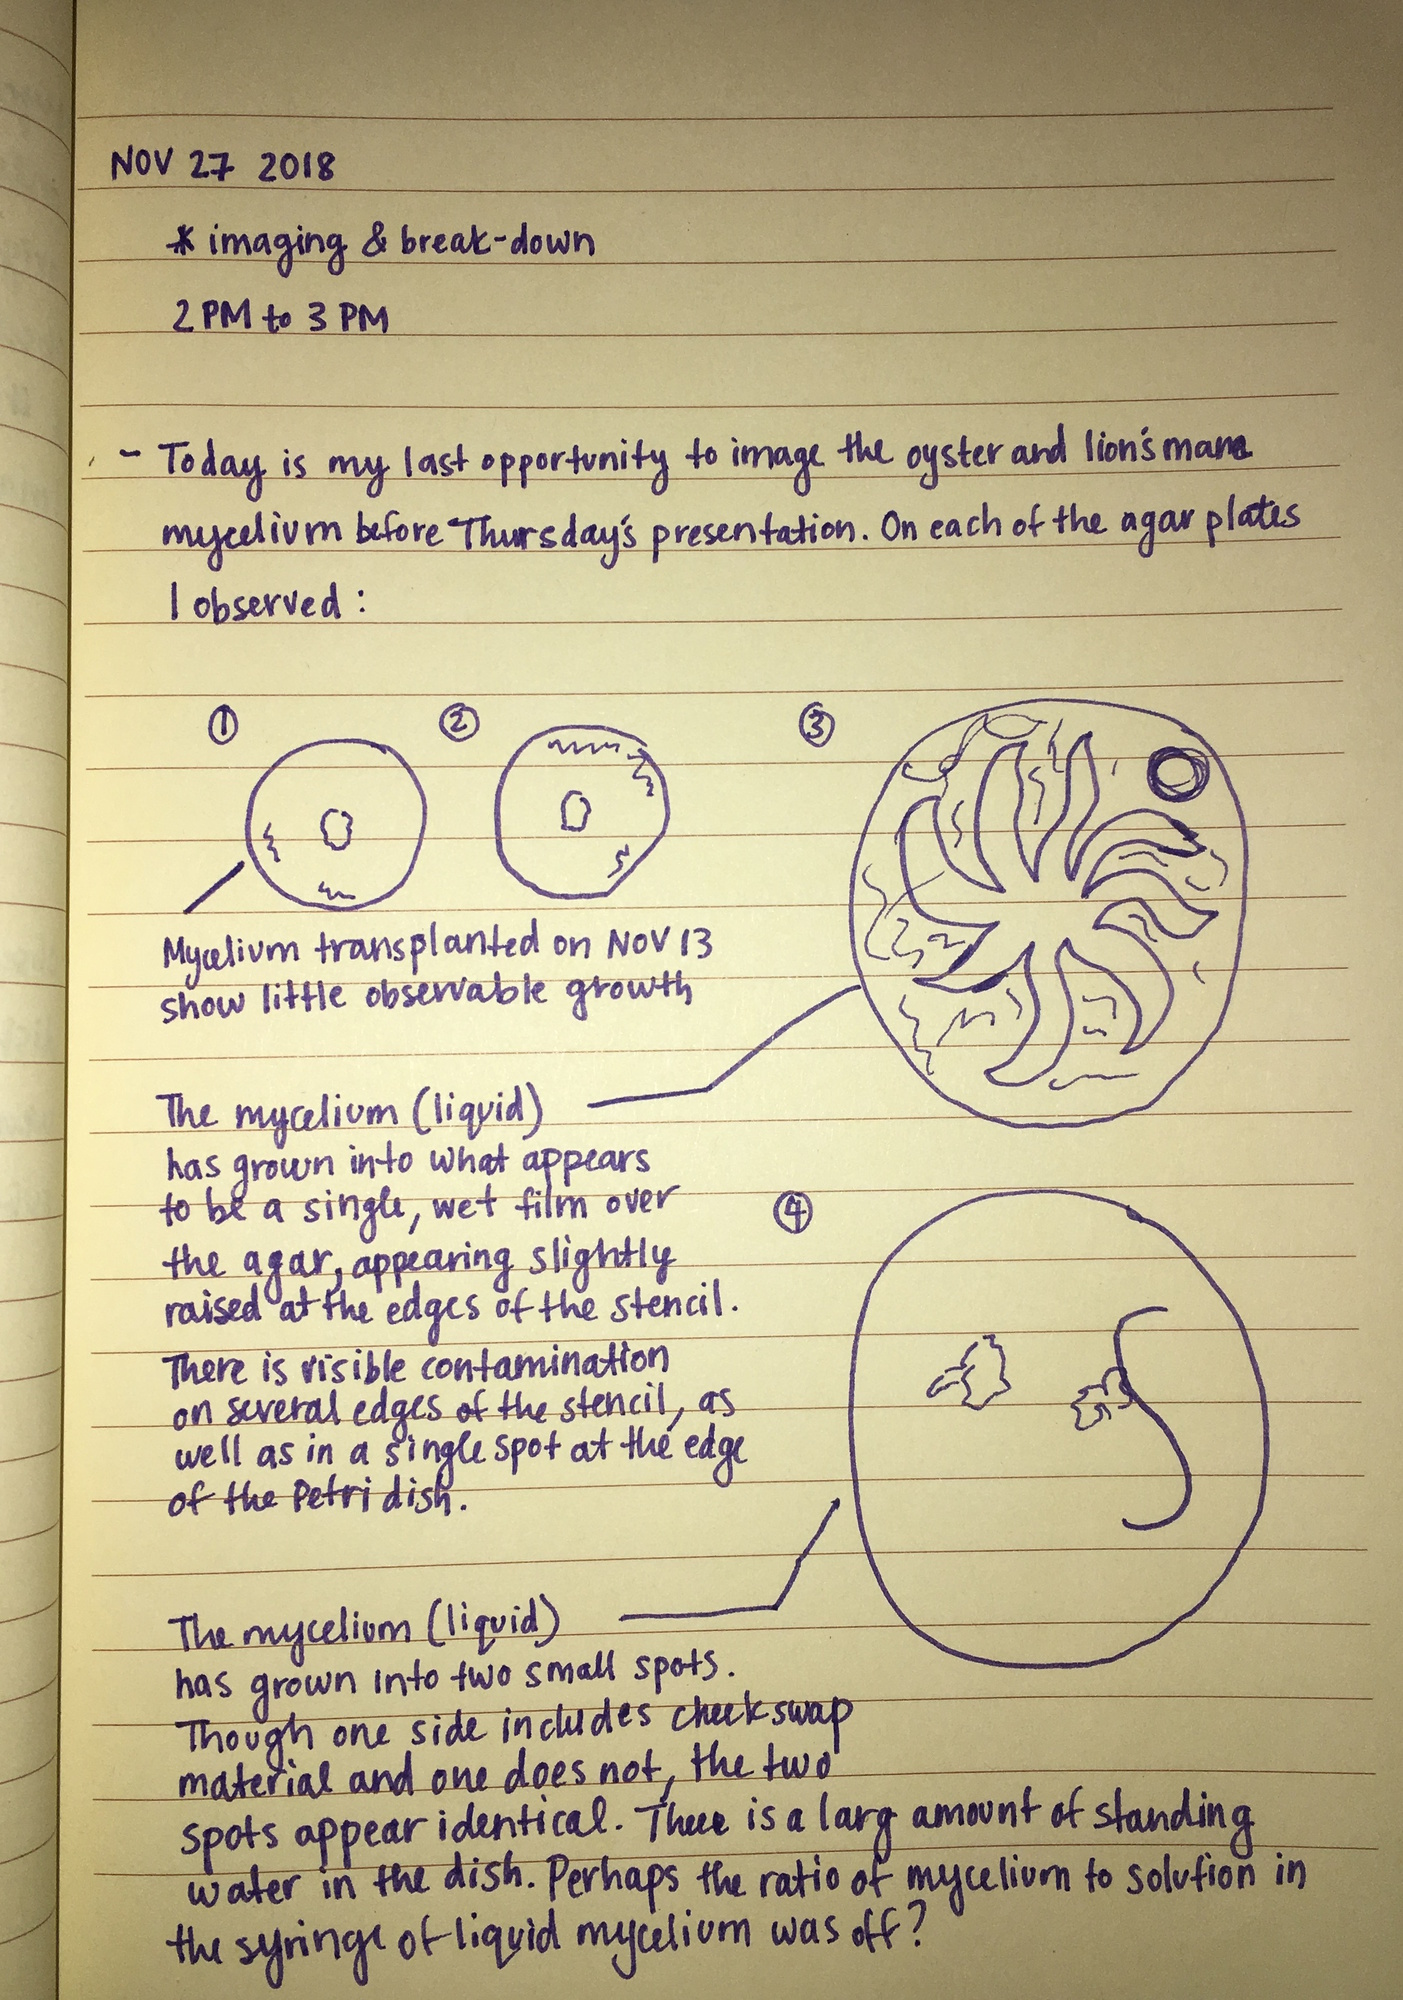 NOV 27 2018
* imaging & break-down
2 PM to 3 PM
- Today is my last opportunity to image the oyster and lion's mane
mycelium before Thursday's presentation. On each of the agar plates
I observed:
① ② ③
Mycelium transplanted on NOV 13
show little observable growth
The mycelium (liquid)
has grown into what appears
to be a single, wet film over
the agar, appearing slightly
raised at the edges of the stencil.
There is visible contamination
on several edges of the stencil, as
well as in a single spot at the edge
of the Petri dish.
④
The mycelium (liquid)
has grown into two small spots.
Though one side includes cheek swap
material and one does not, the two
spots appear identical. There is a larg amount of standing
water in the dish. Perhaps the ratio of mycelium to solution in
the syringe of liquid mycelium was off?